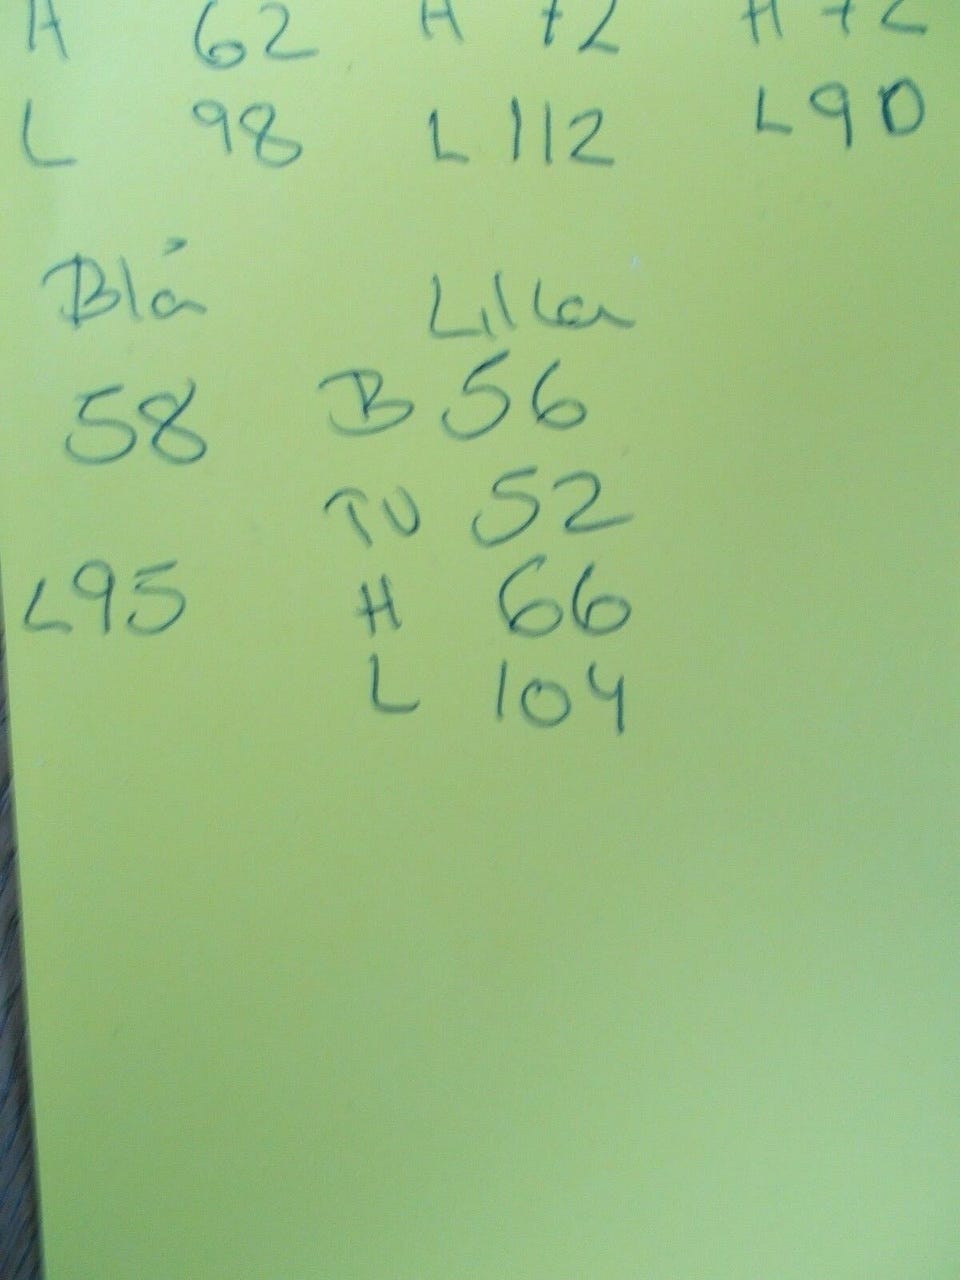 H 62 H 72 H 72
L 98 L 112 L 90
Blå Lilla
58 B 56
TU 52
L95 H 66
L 104